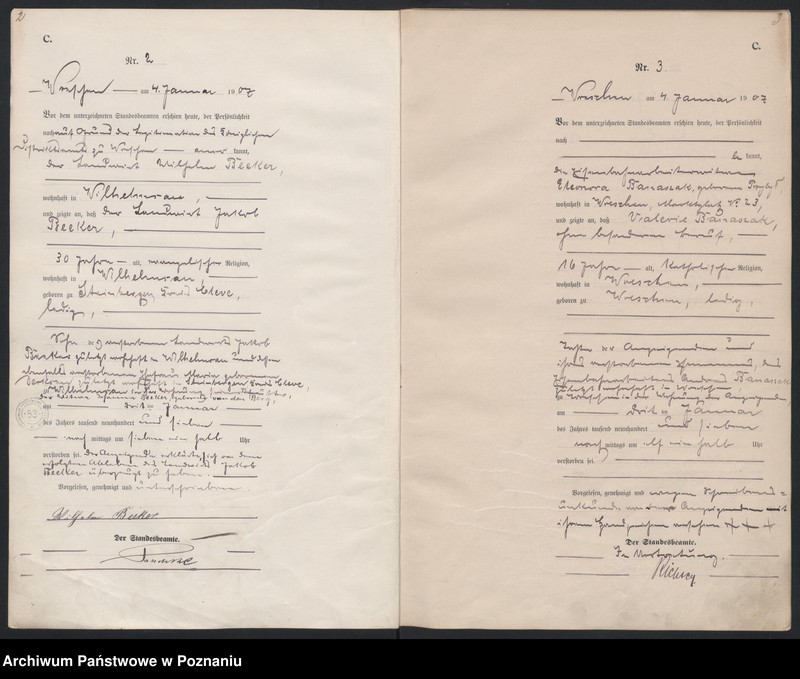 2
C.
Nr. 2
Wreschen am 4. Januar 1907
Vor dem unterzeichneten Standesbeamten erschien heute, der Persönlichkeit
nach auf Grund der Legitimation des Königlichen
Distriktsamts zu Wreschen kannt,
der Landwirt Wilhelm Becker,
wohnhaft in Wilhelmsau,
und zeigte an, daß der Landwirt Jakob
Becker,
30 Jahre alt, evangelischer Religion,
wohnhaft in Wilhelmsau,
geboren zu Kreis Cleve,
ledig,
Sohn des verstorbenen Landwirts Jakob
Becker zuletzt wohnhaft in Wilhelmsau und dessen
ebenfalls verstorbenen Ehefrau Maria geborenen
zuletzt wohnhaft in Kreis Cleve,
zu Wilhelmsau in der Wohnung
der Witwe Johanna Becker geborene van den Berg,
am dritten Januar
des Jahres tausend neunhundert und sieben
nachmittags um sieben ein halb Uhr
verstorben sei. Der Anzeigende erklärte, sich von dem
erfolgten Ableben des Landwirts Jakob
Becker überzeugt zu haben.
Vorgelesen, genehmigt und unterschrieben.
Wilhelm Becker
Der Standesbeamte.
3
C.
Nr. 3
Wreschen am 4. Januar 1907
Vor dem unterzeichneten Standesbeamten erschien heute, der Persönlichkeit
nach
be kannt,
die Eisenbahnarbeiterwitwe
Eleonora Banaszak, geborene
wohnhaft in Wreschen, Marktplatz No. 23,
und zeigte an, daß Valerie Banaszak,
ohne besonderen Beruf,
16 Jahre alt, katholischer Religion,
wohnhaft in Wreschen,
geboren zu Wreschen, ledig,
Tochter der Anzeigenden und
ihres verstorbenen Ehemannes, des
Eisenbahnarbeiters Andreas Banaszak
zuletzt wohnhaft in Wreschen,
zu Wreschen in der Wohnung der Anzeigenden,
am dritten Januar
des Jahres tausend neunhundert und sieben
nachmittags um elf ein halb Uhr
verstorben sei.
Vorgelesen, genehmigt und wegen Schreibens-
unkunde von der Anzeigenden mit
ihrem Handzeichen versehen + + +
Der Standesbeamte.
In Vertretung.
Archiwum Państwowe w Poznaniu